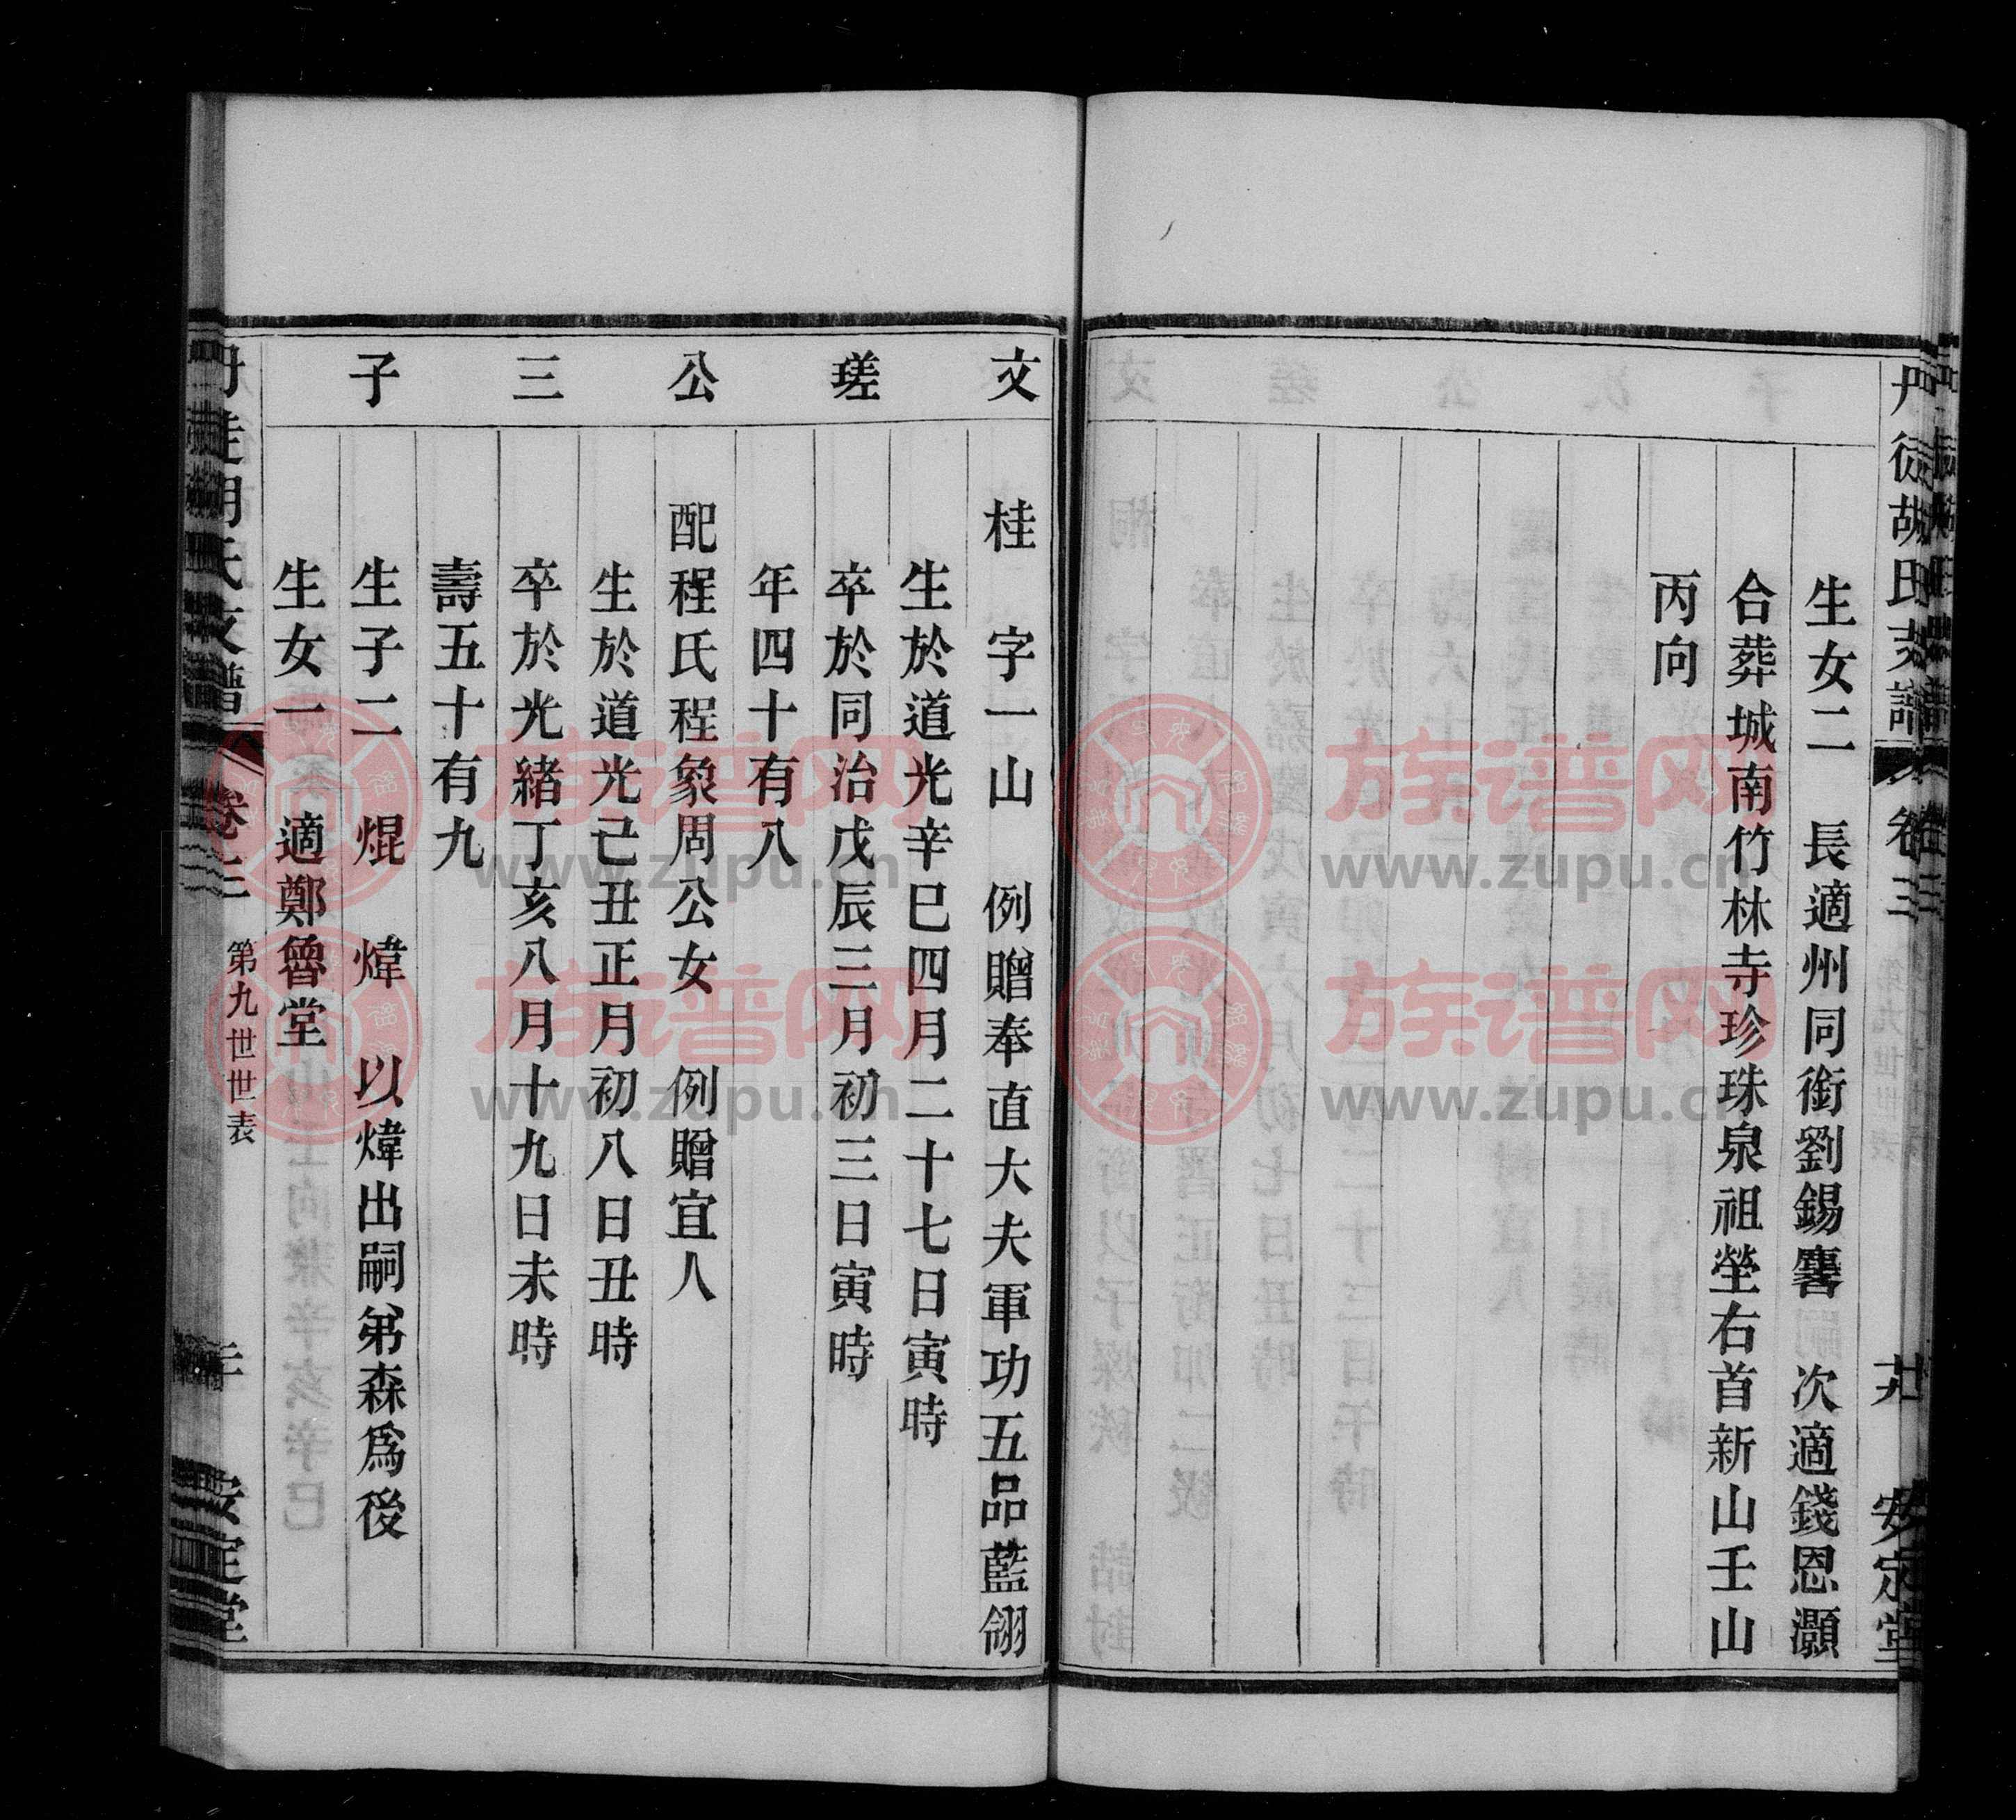 丹徒胡氏支譜 卷三 安定堂
生女二 長適州同銜劉錫麐 次適錢恩灝
合葬城南竹林寺珍珠泉祖塋右首新山壬山
丙向
文瑳公三子
桂 字一山 例贈奉直大夫軍功五品藍翎
生於道光辛巳四月二十七日寅時
卒於同治戊辰三月初三日寅時
年四十有八
配程氏程象周公女 例贈宜人
生於道光己丑正月初八日丑時
卒於光緒丁亥八月十九日未時
壽五十有九
生子二 焜 煒 以煒出嗣弟森爲後
生女一 適鄭魯堂
丹徒胡氏支譜 卷三 第九世世表 安定堂
族谱网
www.zupu.cn
族谱网
www.zupu.cn
族谱网
www.zupu.cn
族谱网
www.zupu.cn